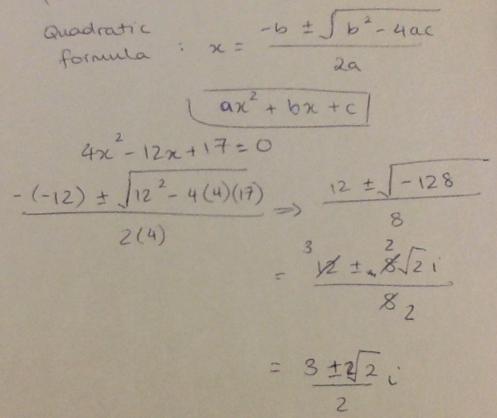 Quadratic
formula : x = (-b ± √(b² - 4ac)) / 2a
ax² + bx + c
4x² - 12x + 17 = 0
(-(-12) ± √(12² - 4(4)(17))) / 2(4) ⇒ (12 ± √(-128)) / 8
= (12 3 ± 8 2 √2 i) / 8 2
= (3 ± 2√2) / 2 i